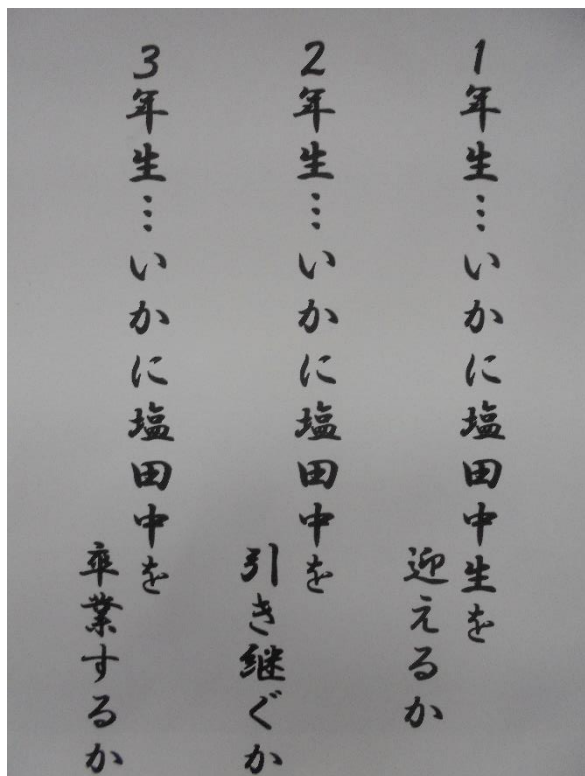 1年生…いかに塩田中生を
迎えるか
2年生…いかに塩田中を
引き継ぐか
3年生…いかに塩田中を
卒業するか